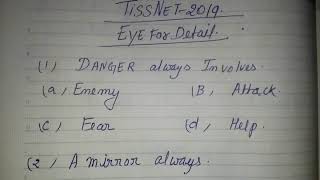 TISSNET-2019.
EYE For Detail.
(1) DANGER always Involves.
(a, Enemy (B, Attack.
(C, Fear (d, Help.
(2, A mirror always.